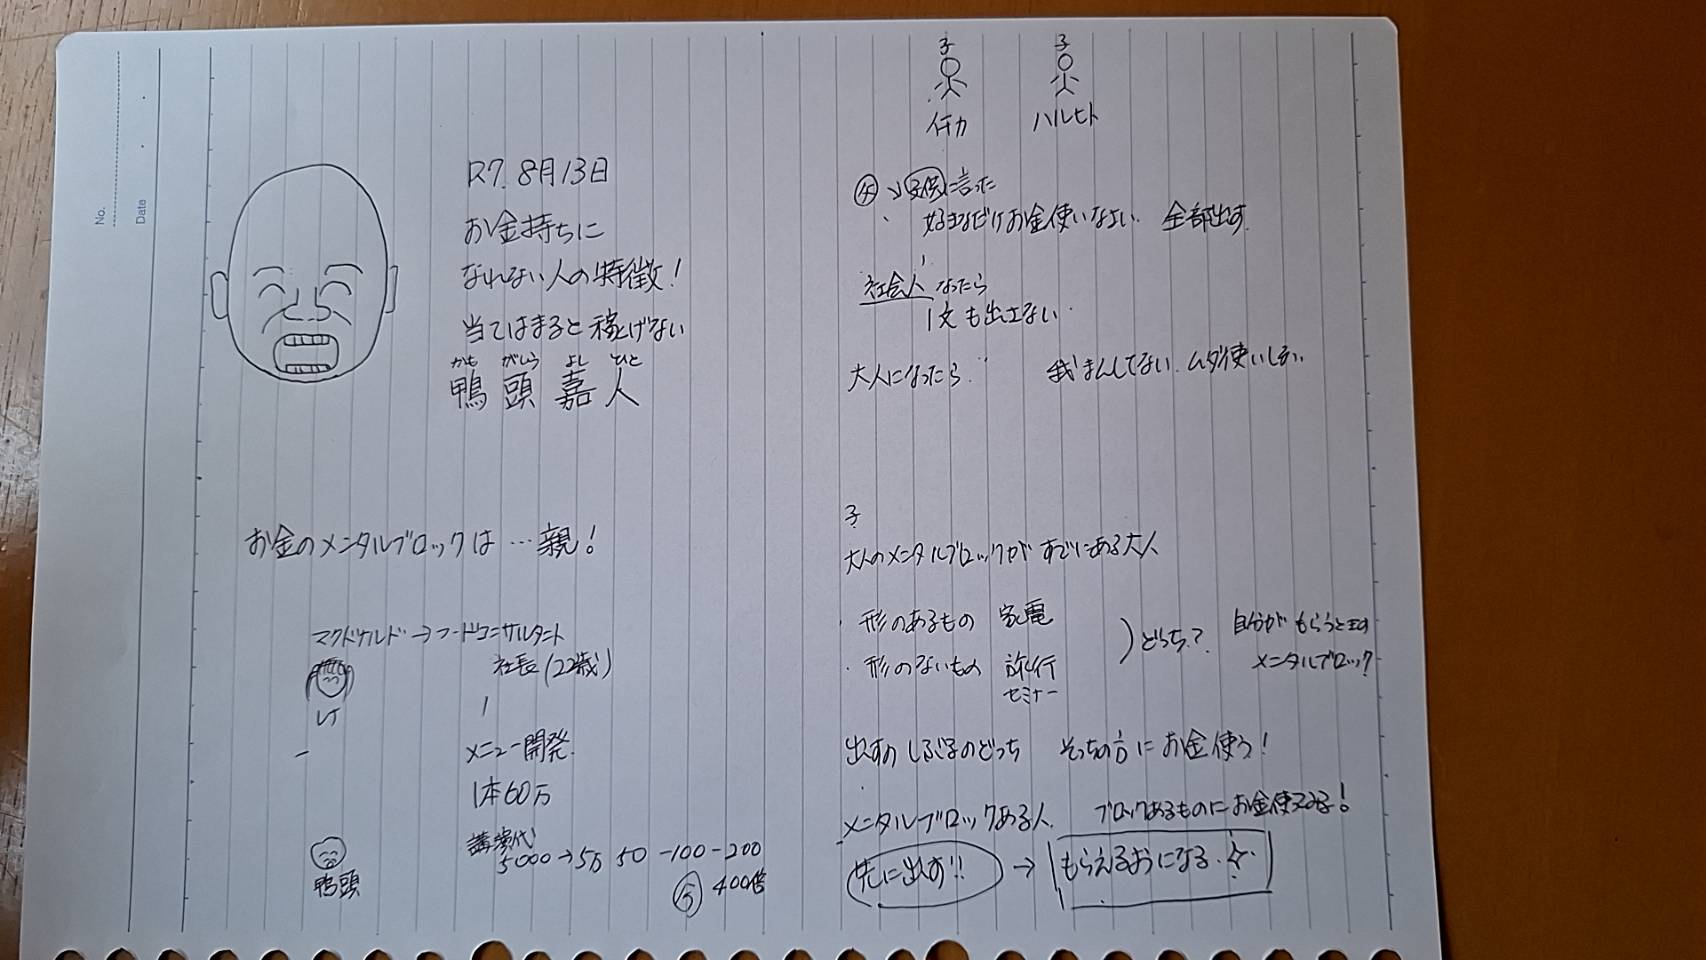 No.
Date
R7. 8月13日
お金持ちに
なれない人の特徴！
当てはまると稼げない
かも がしら よし ひと
鴨頭嘉人
お金のメンタルブロックは…親！
マクドナルド→フードコンサルタント
社長(22歳)
レイ
メニュー開発
1本60万
講演代
5000→5万 50-100-200
400倍
鴨頭
子 子
イチカ ハルヒト
子供に言った
好きなだけお金使いなよい. 全部出す.
社会人なったら
1文も出さない.
大人になったら.. 我まんしてない. ムダ使いしない.
子
大人のメンタルブロックがすでにある大人
・形のあるもの 家電
・形のないもの 旅行
セミナー
どっち？ 自分がもらうときの
メンタルブロック
出すのしぶるのどっち そっちの方にお金使う！
メンタルブロックある人. ブロックあるものにお金使ってみる！
先に出す!! → もらえるおになる.☆.